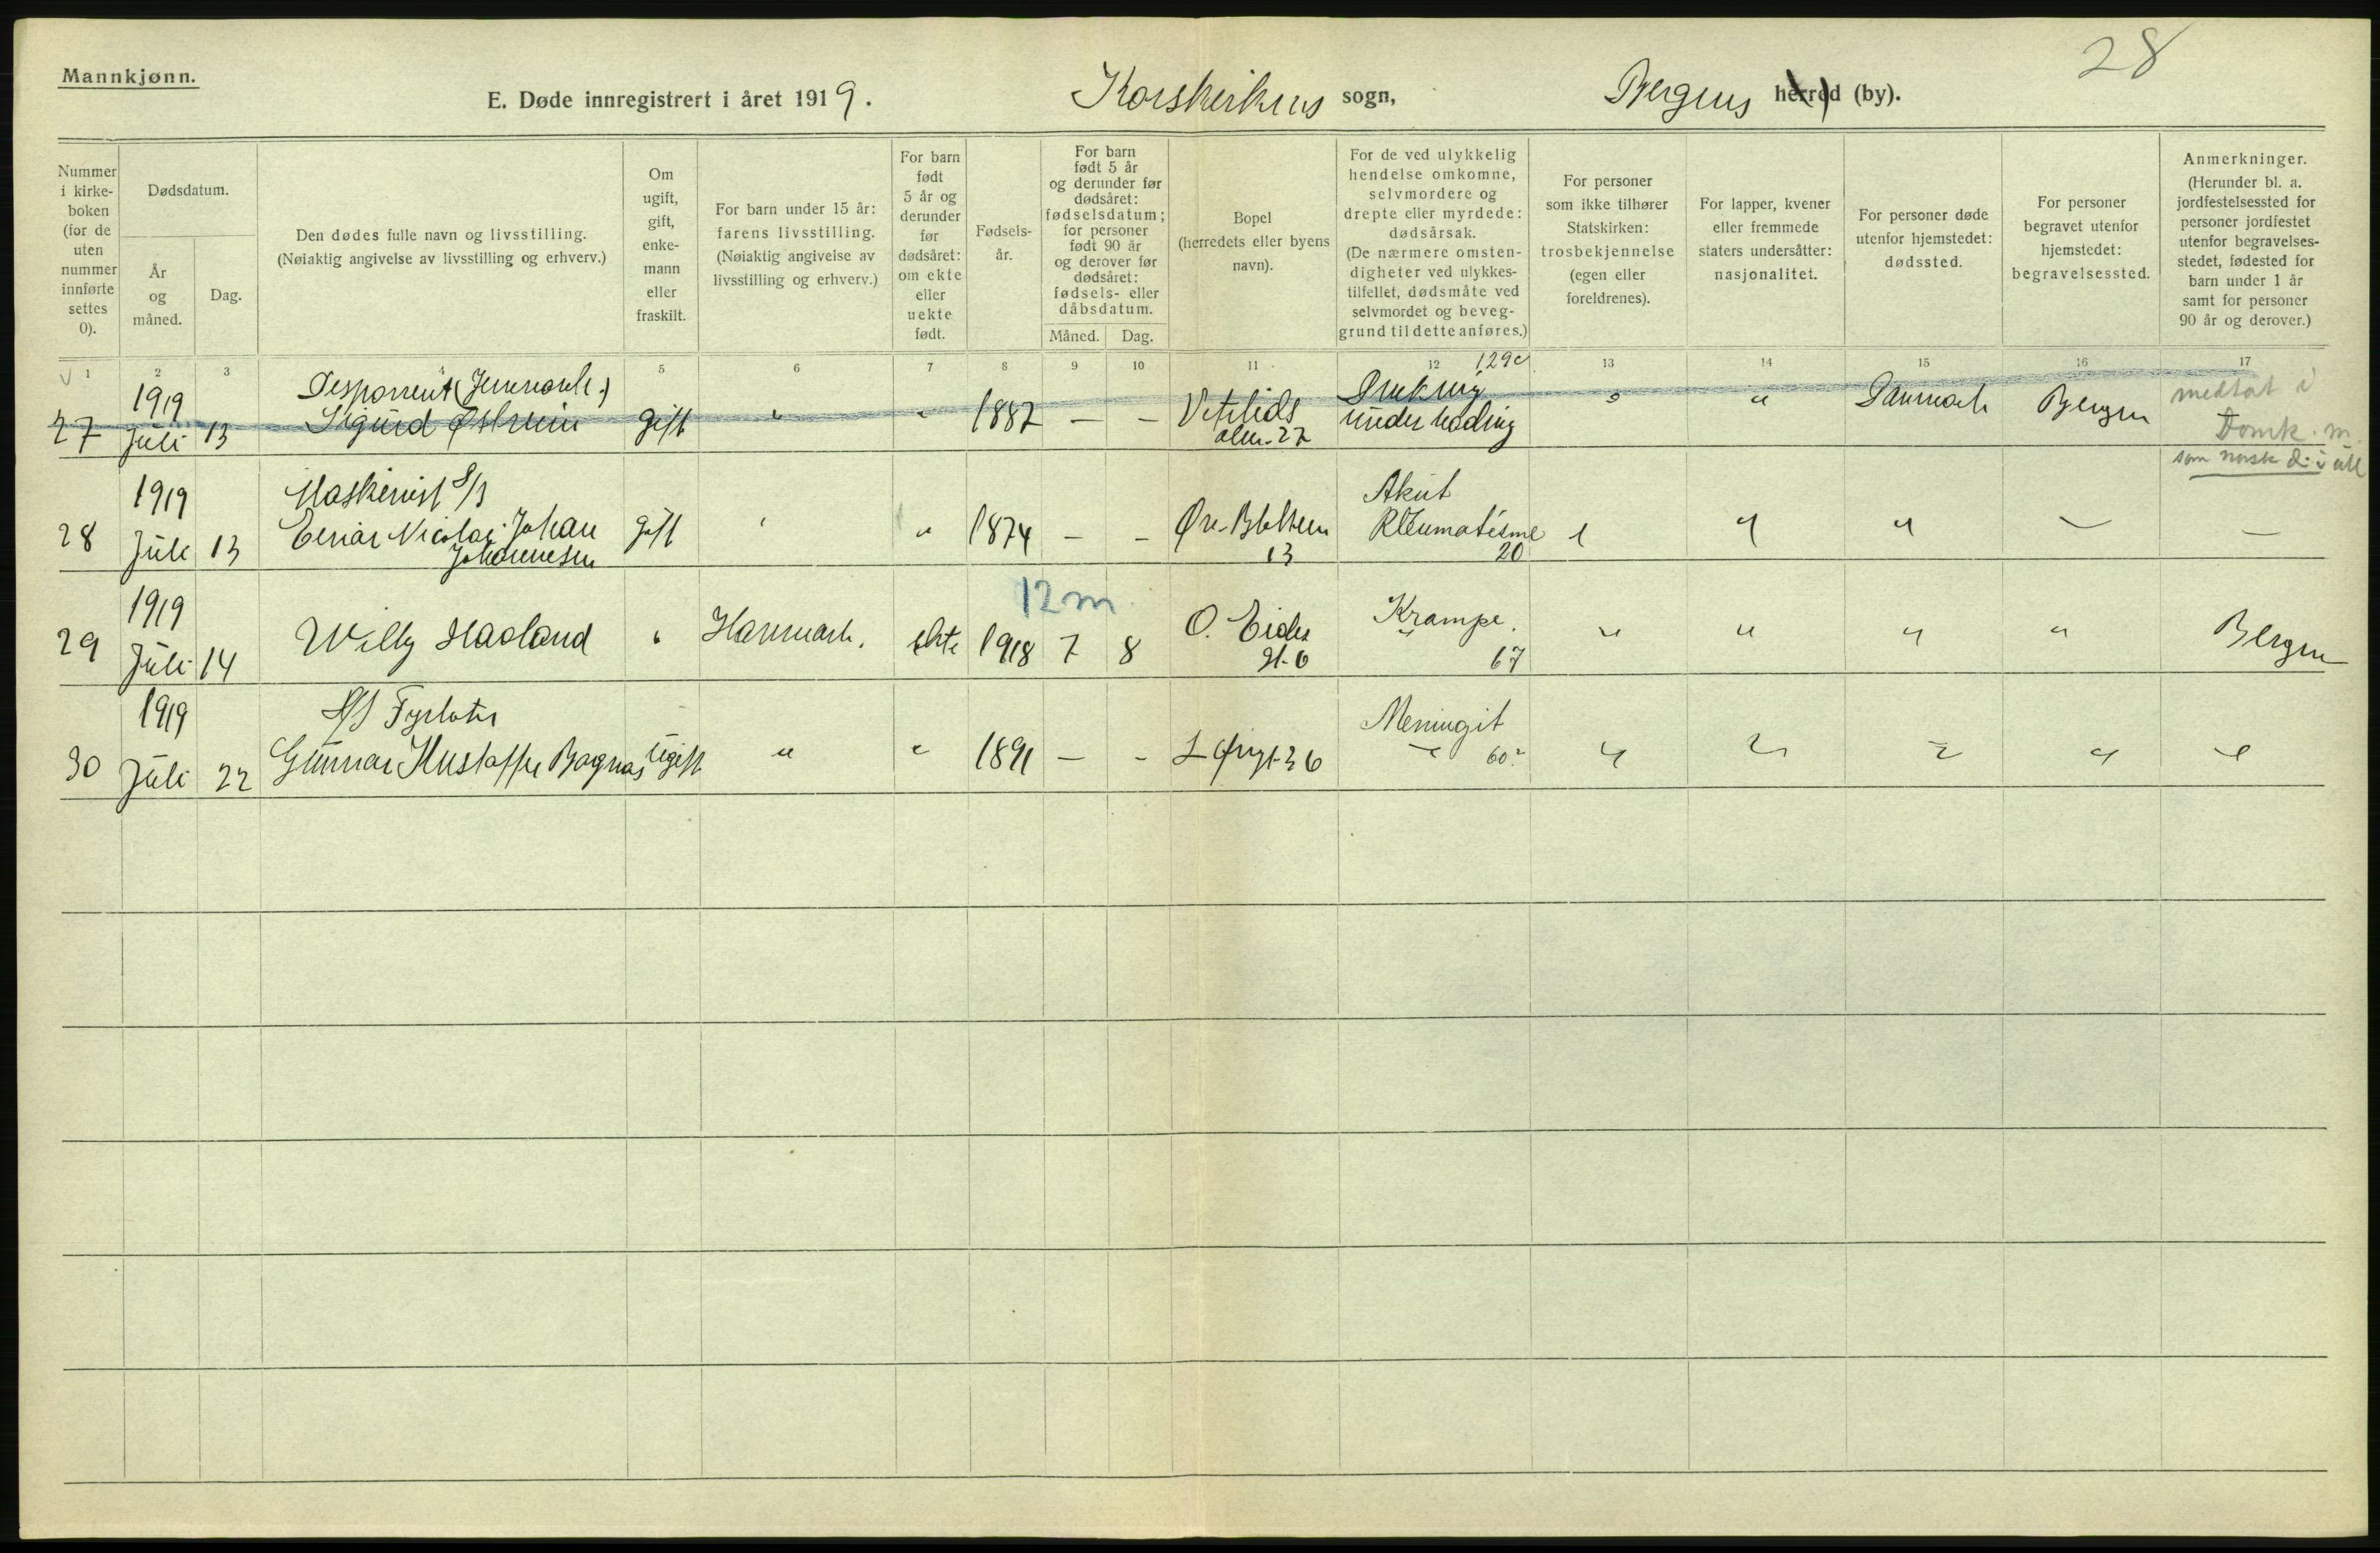 28
Mannkjønn.
E. Døde innregistrert i året 1919. Korskirkens sogn, Bergens herred (by).
Nummer i kirke-boken (for de uten nummer innførte settes 0).
Dødsdatum.
År og måned.
Dag.
Den dødes fulle navn og livsstilling.
(Nøiaktig angivelse av livsstilling og erhverv.)
Om ugift, gift, enke-mann eller fraskilt.
For barn under 15 år: farens livsstilling.
(Nøiaktig angivelse av livsstilling og erhverv.)
For barn født 5 år og derunder før dødsåret: om ekte eller uekte født.
Fødsels-år.
For barn født 5 år og derunder før dødsåret: fødselsdatum; for personer født 90 år og derover før dødsåret: fødsels- eller dåbsdatum.
Måned. Dag.
Bopel (herredets eller byens navn).
For de ved ulykkelig hendelse omkomne, selvmordere og drepte eller myrdede: dødsårsak.
(De nærmere omsten-digheter ved ulykkes-tilfellet, dødsmåte ved selvmordet og beveg-grund til dette anføres.)
For personer som ikke tilhører Statskirken: trosbekjennelse (egen eller foreldrenes).
For lapper, kvener eller fremmede staters undersåtter: nasjonalitet.
For personer døde utenfor hjemstedet: dødssted.
For personer begravet utenfor hjemstedet: begravelsessted.
Anmerkninger.
(Herunder bl. a. jordfestelsessted for personer jordfestet utenfor begravelses-stedet, fødested for barn under 1 år samt for personer 90 år og derover.)
1 2 3 4 5 6 7 8 9 10 11 12 13 14 15 16 17
129c
27 1919 Juli 13 Sigurd gift " " 1887 — — under " Danmark Bergen medtat i Domk. m.
som norsk d. i utl
28 1919 Juli 13 Maskinist Einar Nicolai Johan Johannesen gift " 1874 — — 13 Akut Rheumatisme 20 " " — —
12 m
29 1919 Juli 14 Willy Haaland " ekte 1918 7 8 O. Eides gt. 6 Krampe. 67 " " " " Bergen
30 1919 Juli 22 S/S Fyrbøter Gunnar Ugift " " 1891 — — 36 Meningit 60 " " " " "